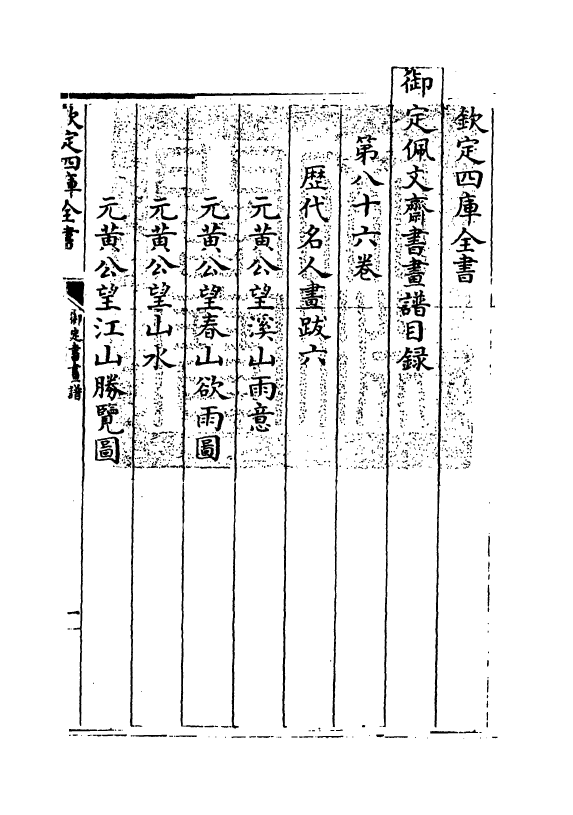 欽定四庫全書
御定佩文齋書畫譜目録
第八十六卷
歴代名人畫跋六
元黄公望溪山雨意
元黄公望春山欲雨圖
元黄公望山水
元黄公望江山勝覽圖
欽定四庫全書
御定書畫譜
一